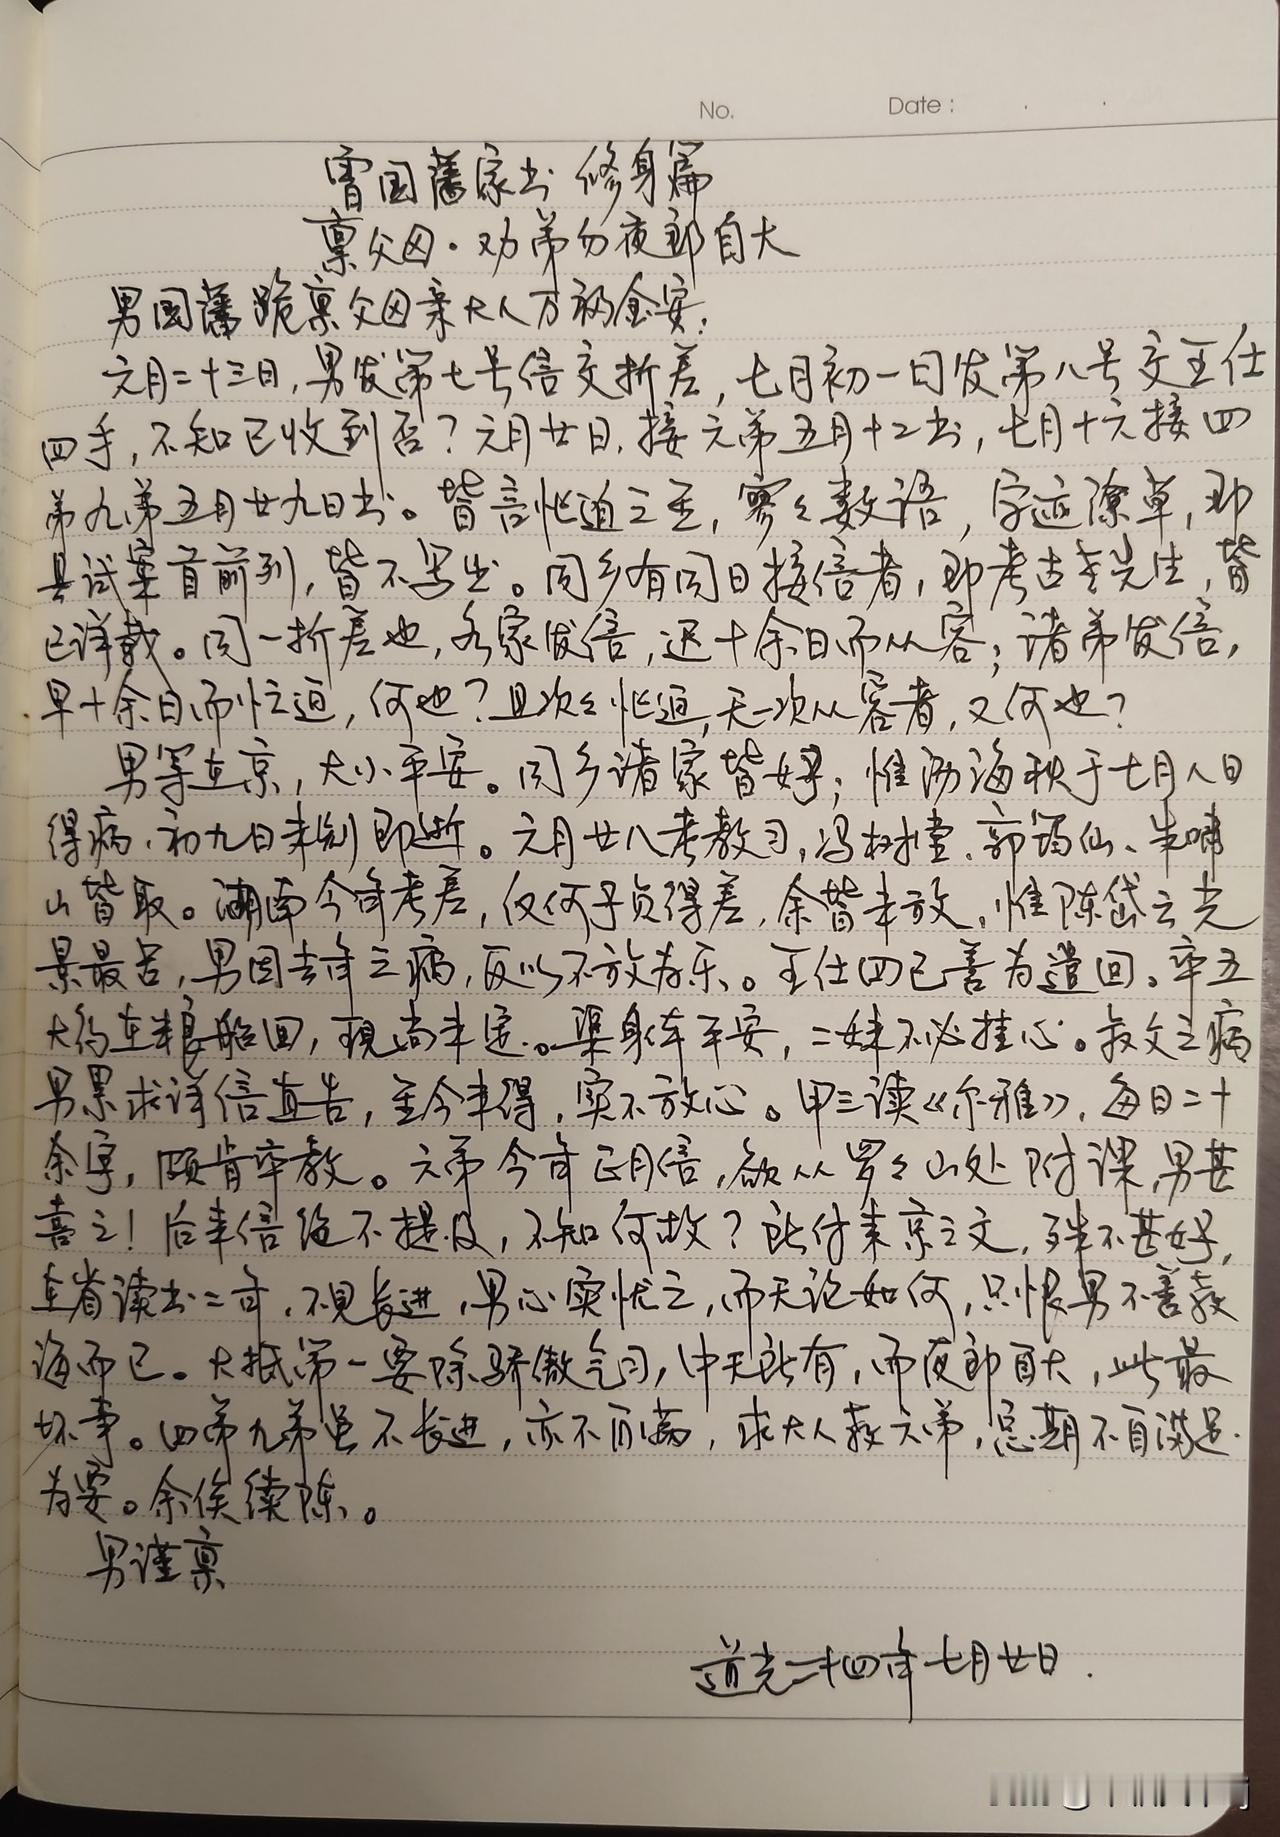 No. Date :
曾国藩家书 修身篇
禀父母·劝弟勿夜郎自大
男国藩跪禀父母亲大人万福金安:
六月二十三日,男发第七号信交折差,七月初一日发第八号交王仕
四手,不知已收到否?六月廿日,接六弟五月十二书,七月十六接四
弟九弟五月廿九日书。皆言忙迫之至,寥々数语,字迹潦草,即
县试案首前列,皆不写出。同乡有同日接信者,即考古老先生,皆
已详载。同一折差也,各家发信,迟十余日而从容;诸弟发信,
早十余日而忙迫,何也?且次々忙迫,无一次从容者,又何也?
男等在京,大小平安。同乡诸家皆好;惟汤海秋于七月八日
得病,初九日未刻即逝。六月廿八考教习,冯树堂、郭筠仙、朱啸
山皆取。湖南今年考差,仅何子贞得差,余皆未放,惟陈岱云光
景最苦,男因去年之病,反以不放为乐。王仕四已善为遣回。率五
大约在粮船回,现尚未定。渠身体平安,二妹不必挂心。叔父之病
男累求详信直告,至今未得,实不放心。甲三读《尔雅》,每日二十
余字,颇肯率教。六弟今年正月信,欲从罗々山处附课,男甚
喜之!后来信绝不提及,不知何故?所付来京之文,殊不甚好,
在省读书二年,不见长进,男心实忧之,而无论如何,只恨男不善教
诲而已。大抵第一要除骄傲气习,中无所有,而夜郎自大,此最
坏事。四弟九弟虽不长进,亦不自满,求大人教六弟,总期不自满足
为要。余俟续陈。
男谨禀
道光二十四年七月廿日.